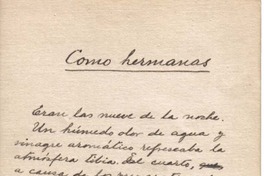 Como hermanas
Eran las nueve de la noche.
Un húmedo olor de agua y
vinagre aromático refrescaba la
atmósfera tibia del cuarto,
a causa de